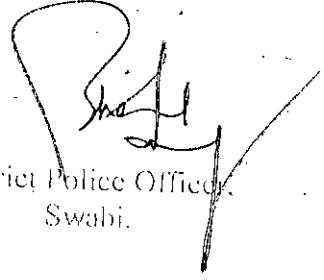 rict Police Officer,
Swabi.